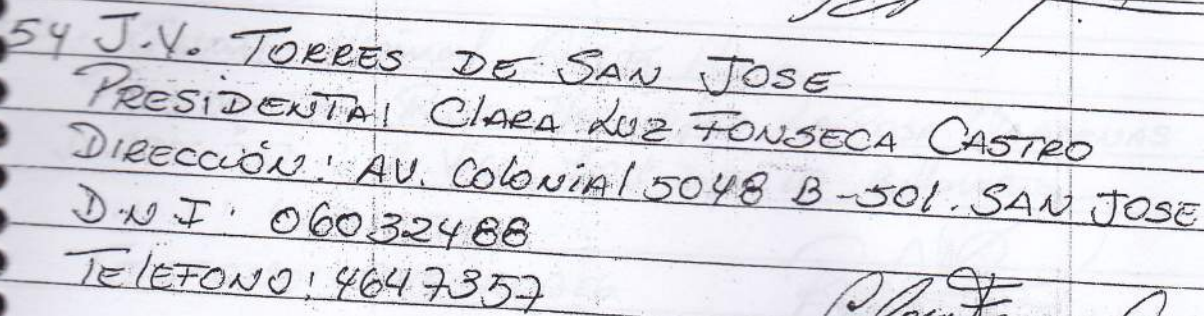 54 J.V. TORRES DE SAN JOSE
PRESIDENTA: CLARA LUZ FONSECA CASTRO
DIRECCIÓN: AV. COLONIAL 5048 B-501. SAN JOSE
D.N.I: 06032488
TELEFONO: 4647357